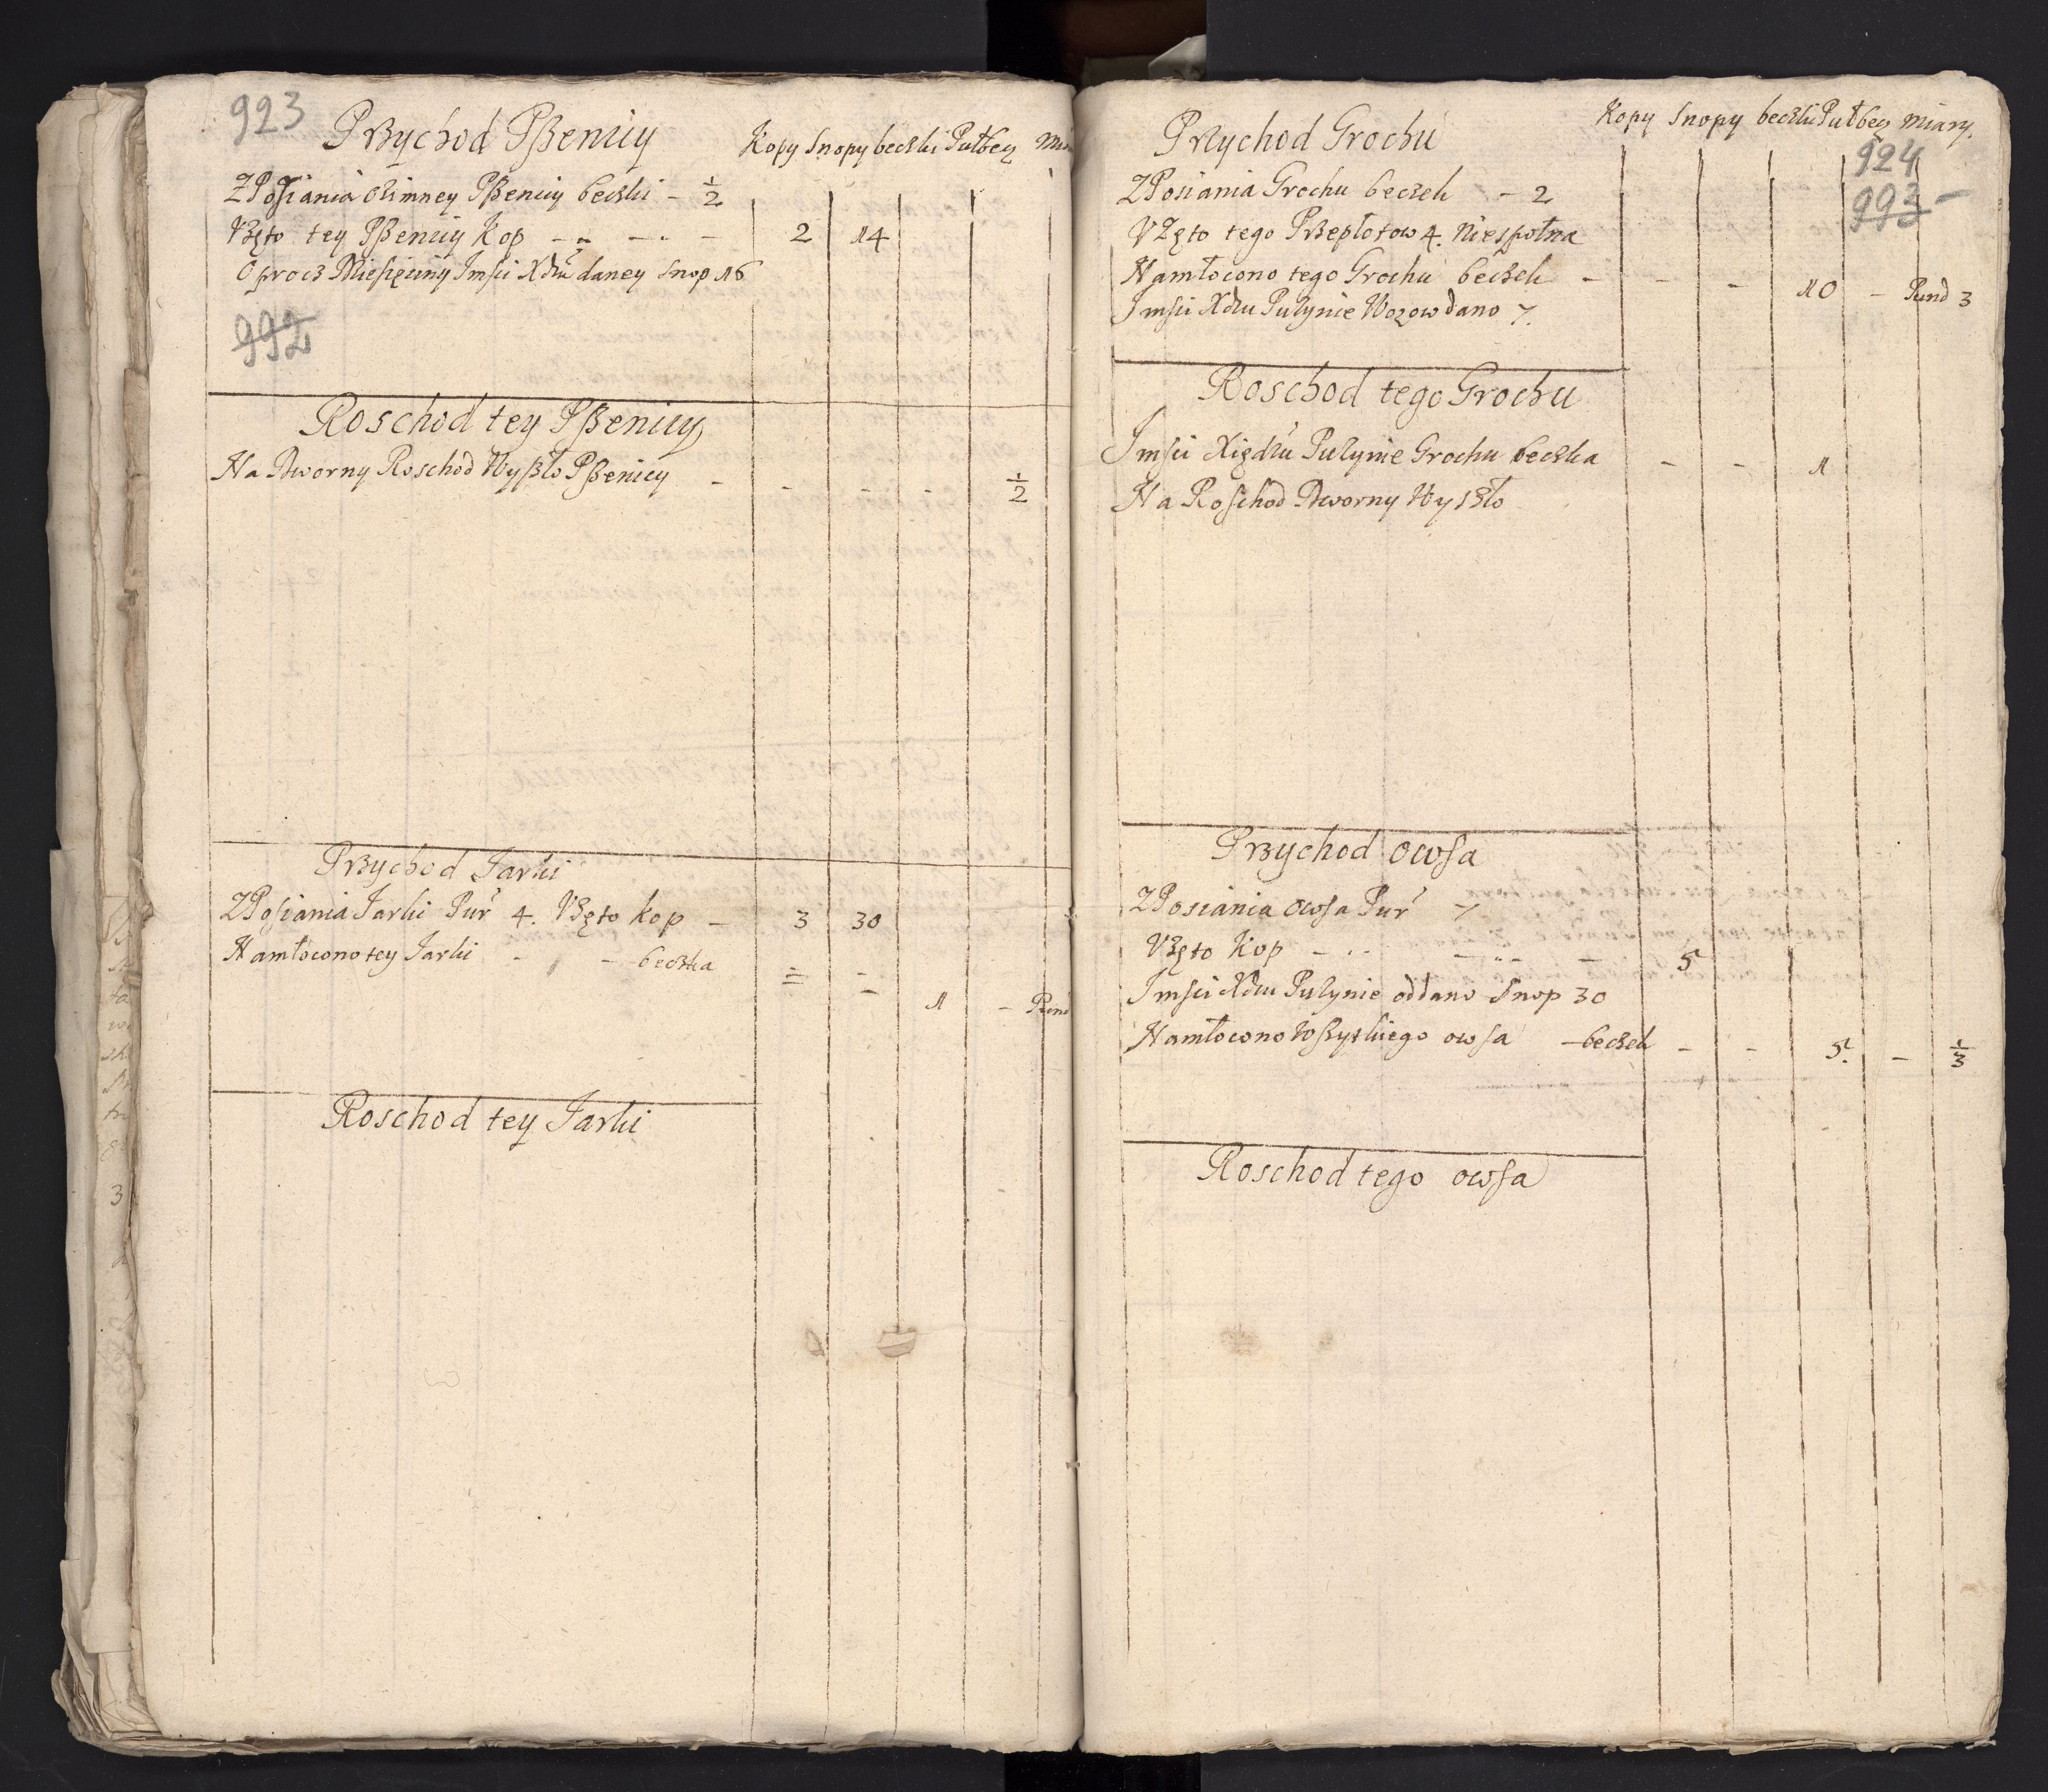 923
Przychod Pßenicy
Kopy Snopy beczki Pułbecz
Z Posiania Ozimney Pßenicy beczki - 1/2
Vżęto tey Pßenicy Kop - - - 2 14
Oprocz Miesięciny Imsci Xdzu daney Snop 16
992
Roschod tey Pßenicy
Na Dworny Roschod Wyßło Pßenicy - - - - 1/2
Przychod Jarki
Z Posiania Jarki Pur 4. Vżęto kop - 3 30
Namłocono tey Jarki - - beczka = - 1 - Pund
Roschod tey Jarki
Kopy Snopy beczki Pułbecz miary.
924
993
Przychod Grochu
Z Posiania Grochu beczek - 2
Vżęto tego Przepłotow 4. niespołna
Namłocono tego Grochu beczek - - - 10 - Pund 3
Imsci Xdzu Pulynie Wozow dano 7.
Roschod tego Grochu
Imsci Xiędzu Pulynie Grochu beczka - - 1
Na Roschod Dworny Wyszło
Przychod owsa
Z Posiania owsa Pur 7
Vżęto Kop - - - 5
Imsci Xdzu Pulynie oddano Snop 30
Namłocono Wßyskiego owsa - beczek - - 5. - 1/3
Roschod tego owsa